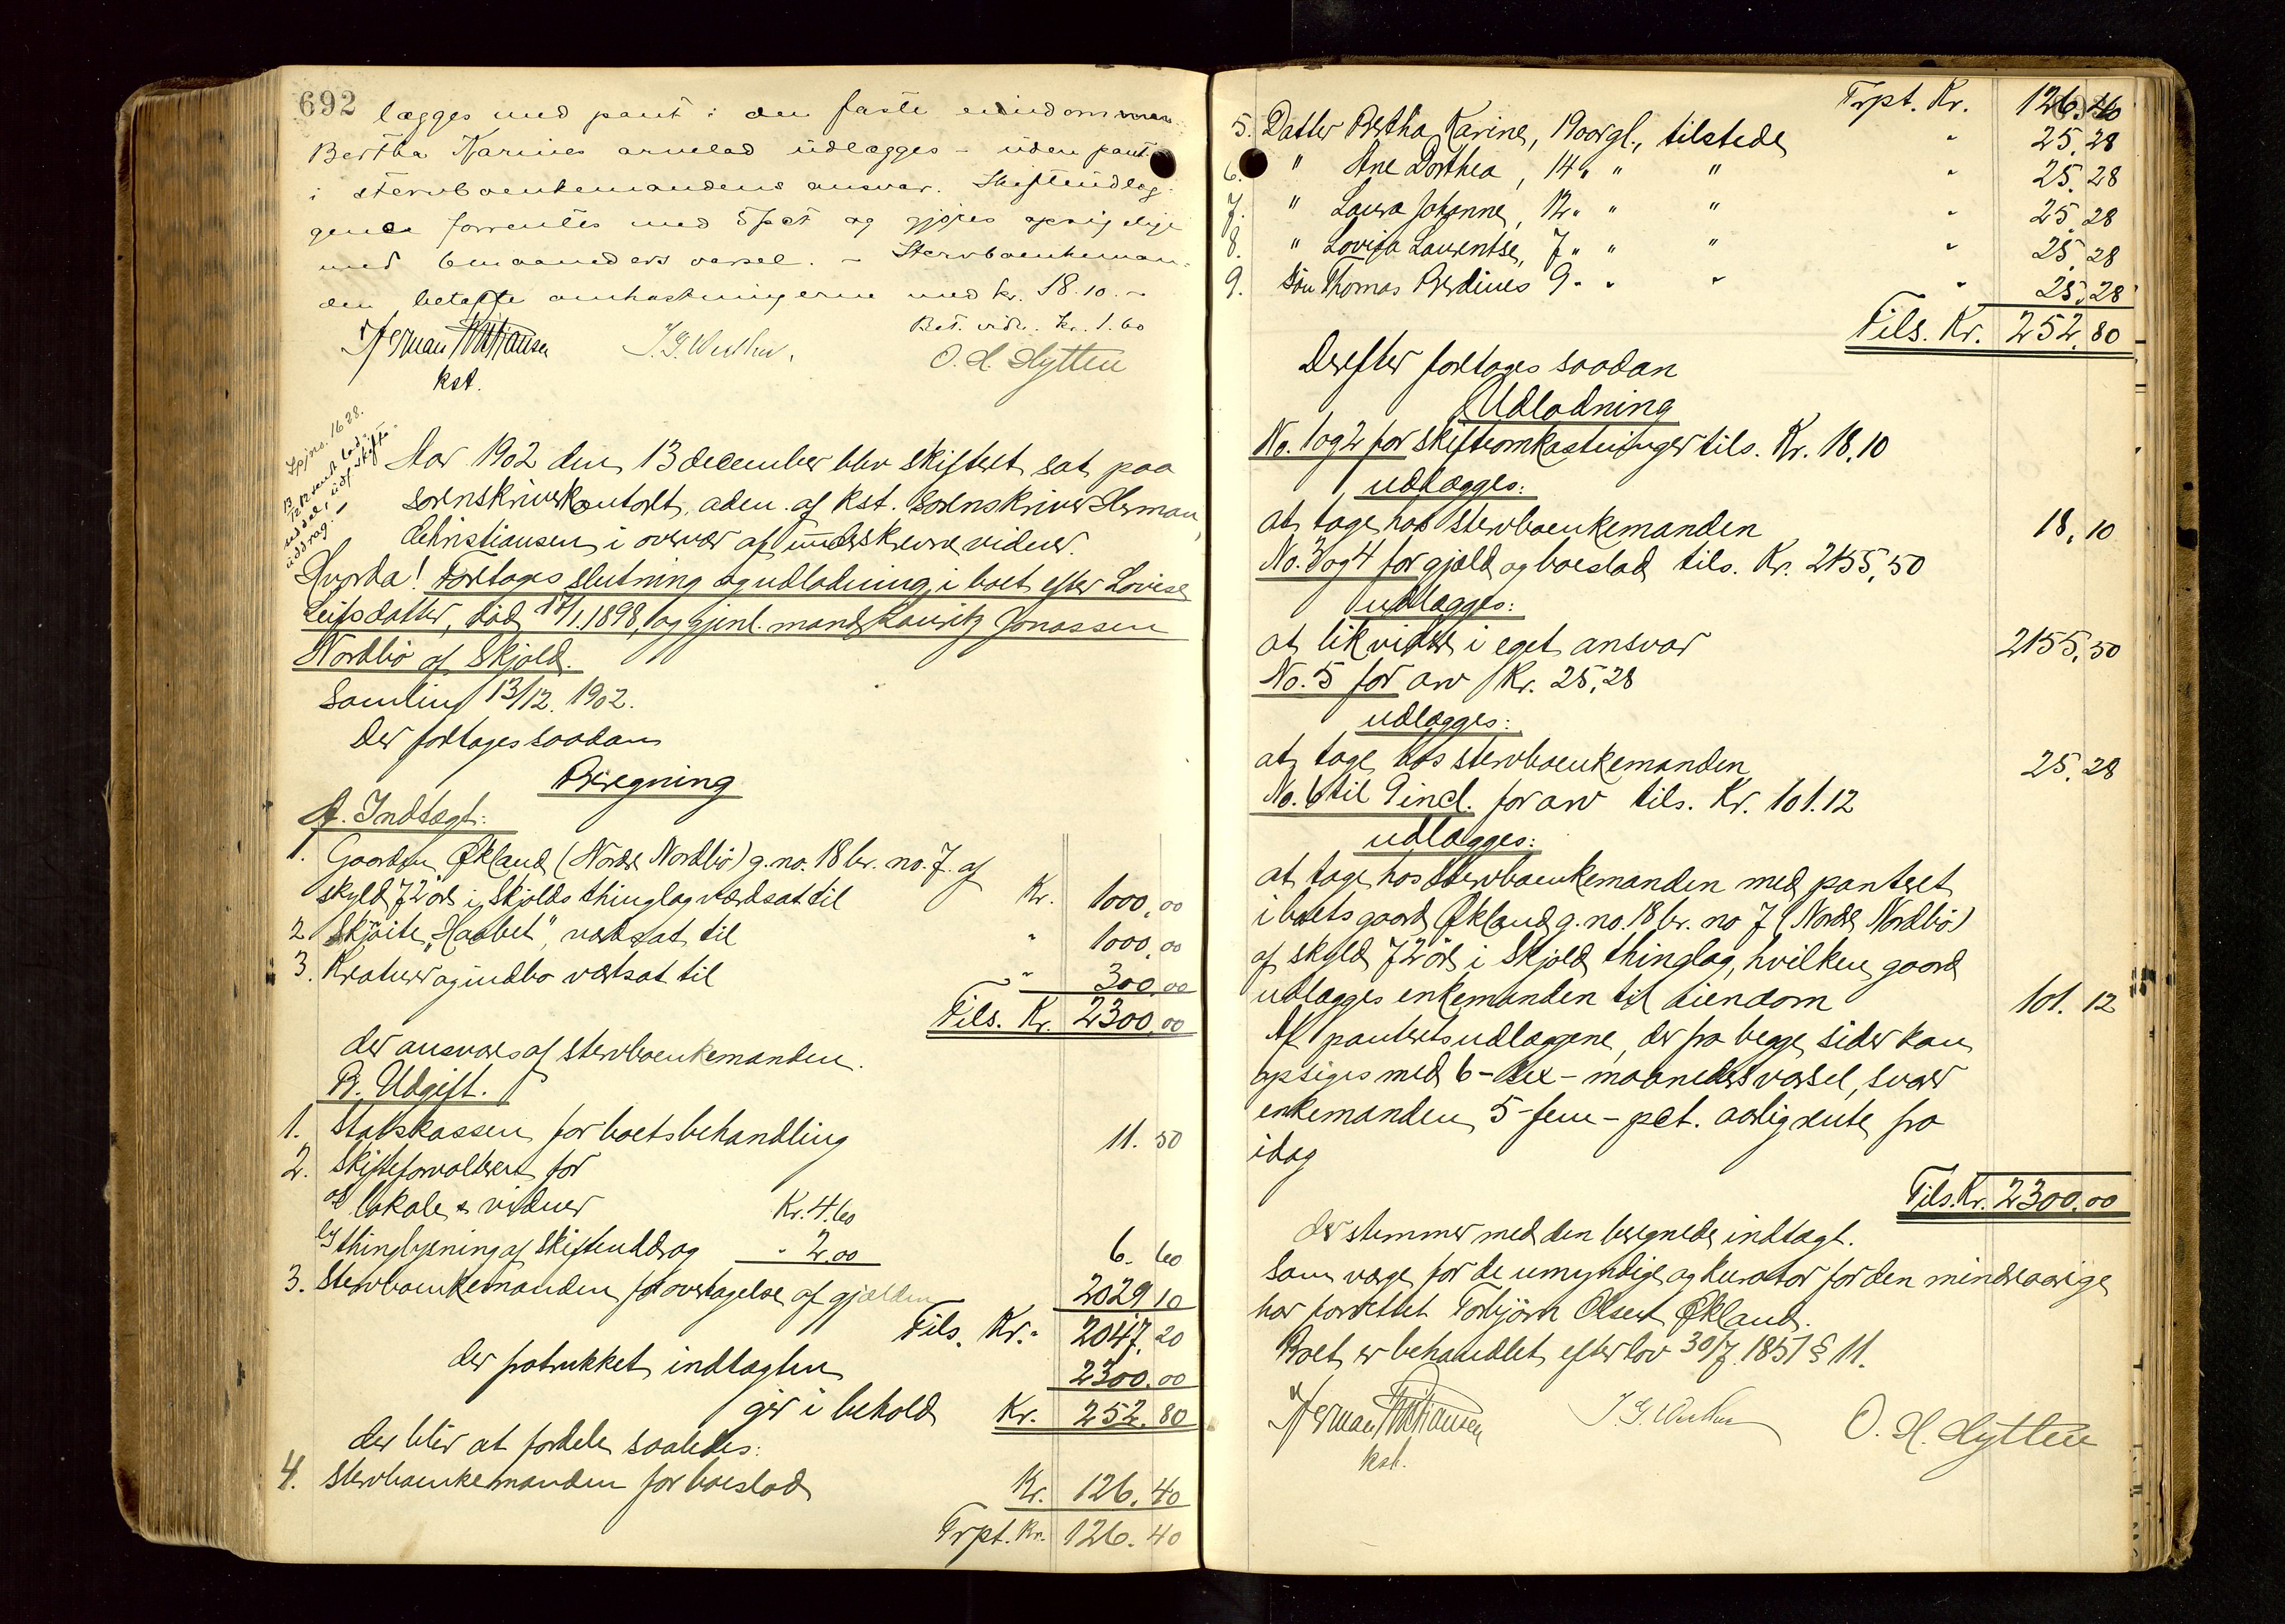 692
lægges med pant i den faste eiendom men
Bertha Karines arvelod udlægges – uden pant
i stervboenkemandens ansvar. Skifteudlæg-
gene forrentes med 5 pct og gjøres opsigelige
med 6 maaneders varsel. – Stervboenkeman-
den betalte omkostningerne med kr. 18.10. –
Bet. vidn. kr. 1.60
Herman Christiansen
kst.
O. H. Hytten
Spjno. 1628.
Aar 1902 den 13 december blev skifteret sat paa
sorenskriverkontoret, adm. af kst. sorenskriver Herman
Christiansen i overvær af underskrevne vidner.
Hvorda! Foretages slutning og udlodning i boet efter Lovise
Leifsdatter, död 17/1.1898, og gjenl. mand Lauritz Jonassen
Nordbö af Skjold.
Samling 13/12. 1902.
Der foretages saadan
Beregning
A. Indtægt:
1. Gaarden Økland (Nordre Nordbö) g.no. 18 br. no. 7. af
skyld 72 öre i Skjolds thinglag værdsat til Kr. 1000,00
2 Skjöite "Haabet", værdsat til " 1000,00
3. Kreaturer og indbo værdsat til " 300,00
Tils. Kr. 2300,00
der ansvares af stervboenkemanden.
B. Udgift.
1. Statskassen for boets behandling 11.50
2. Skifteforvalteren for
a) lokale & vidner Kr. 4.60
b) thinglysning af skifteuddrag " 2,00 6.60
3. Stervboenkemanden for overtagelse af gjælden 2029,10
Tils. Kr. 2047,20
der fratrukket indtægten 2300.00
gir i behold Kr. 252.80
der blir at fordele saaledes:
4. Stervboenkemanden for boeslod Kr. 126.40
Trpt. Kr. 126.40
Trpt. Kr. 126.40
5. Datter Bertha Karine, 19 aar gl., tilstede " 25.28
6. " Ane Dorthea, 14 " " " " 25.28
7. " Laura Johanne, 12 " " " " 25.28
8. " Lovisa Laurentse, 7 " " " " 25.28
9. Sön Thomas Berdines 9 " " " " 25.28
Tils. Kr. 252.80
Derefter foretages saadan
Udlodning
No. 1 og 2 for skifteomkostninger tils. Kr. 18.10
udlægges:
at tage hos stervboenkemanden 18,10
No. 3 og 4 for gjæld og boeslod tils. Kr. 2155,50
udlægges:
at likvidere i eget ansvar 2155,50
No. 5 for arv Kr. 25,28
udlægges:
at tage hos stervboenkemanden 25.28
No. 6 til 9 incl. for arv tils. Kr. 101.12
udlægges:
at tage hos stervboenkemanden med panteret
i boets gaard Økland g.no. 18 br. no 7 (Nordre Nordbö)
af skyld 72 öre i Skjold thinglag, hvilken gaard
udlægges enkemanden til eiendom 101.12
Af panteretsudlæggene, der fra begge sider kan
opsiges med 6 – sex – maaneders varsel, svarer
enkemanden 5 – fem – pct. aarlig rente fra
idag
Tils. Kr. 2300.00
der stemmer med den beregnede indtægt.
Som værge for de umyndige og kurator for den mindreaarige
har forrettet Torbjörn Olsen Økland.
Boet er behandlet efter lov 30/7. 1851 § 11.
Herman Christiansen
kst.
O. H. Hytten